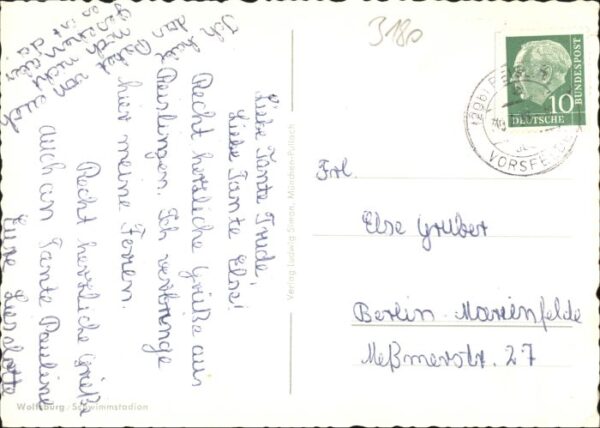 Liebe Tante Trude,
Liebe Tante Else!
Recht herzliche Grüße aus
Reislingen. Ich verbringe
hier meine Ferien.
Recht herzliche Grüße
auch an Tante Pauline
Eure Liselotte
Ich hab
von
nicht
auch
3180
Frl.
Else Gruber
Berlin-Marienfelde
Meßmerstr. 27
10
DEUTSCHE
BUNDESPOST
(20b)
VORSFELDE
Verlag Ludwig Simon, München-Pullach
Wolfsburg, Schwimmstadion